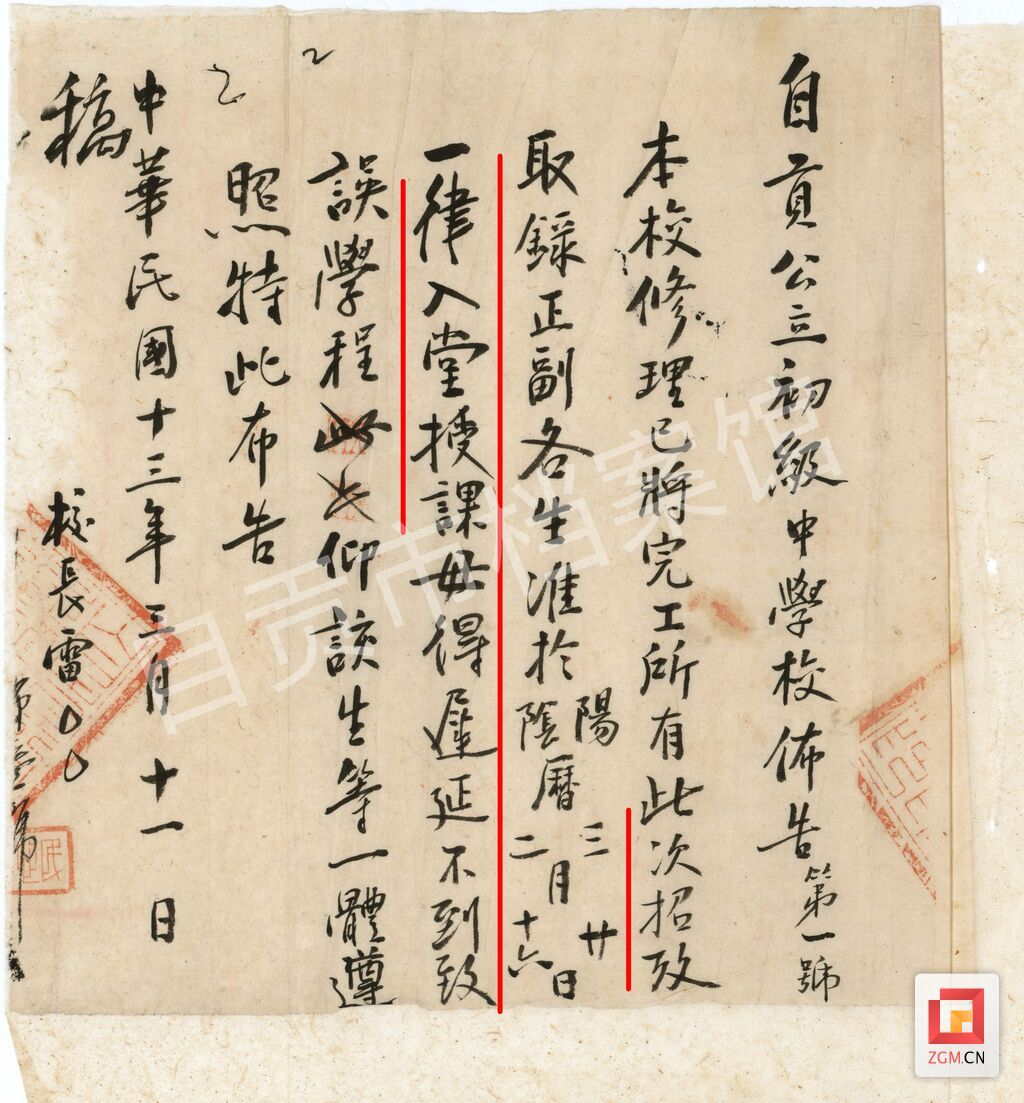 自貢公立初級中學校佈告第一號
本校修理已將完工所有此次招攷
取錄正副各生准於陽陰曆三二月廿十六日
一律入堂授課毋得遲延不到致
誤學程此仰該生等一體遵
照特此布告
中華民國十三年三月十一日
校長雷
稿
自贡市档案馆
ZGM.CN